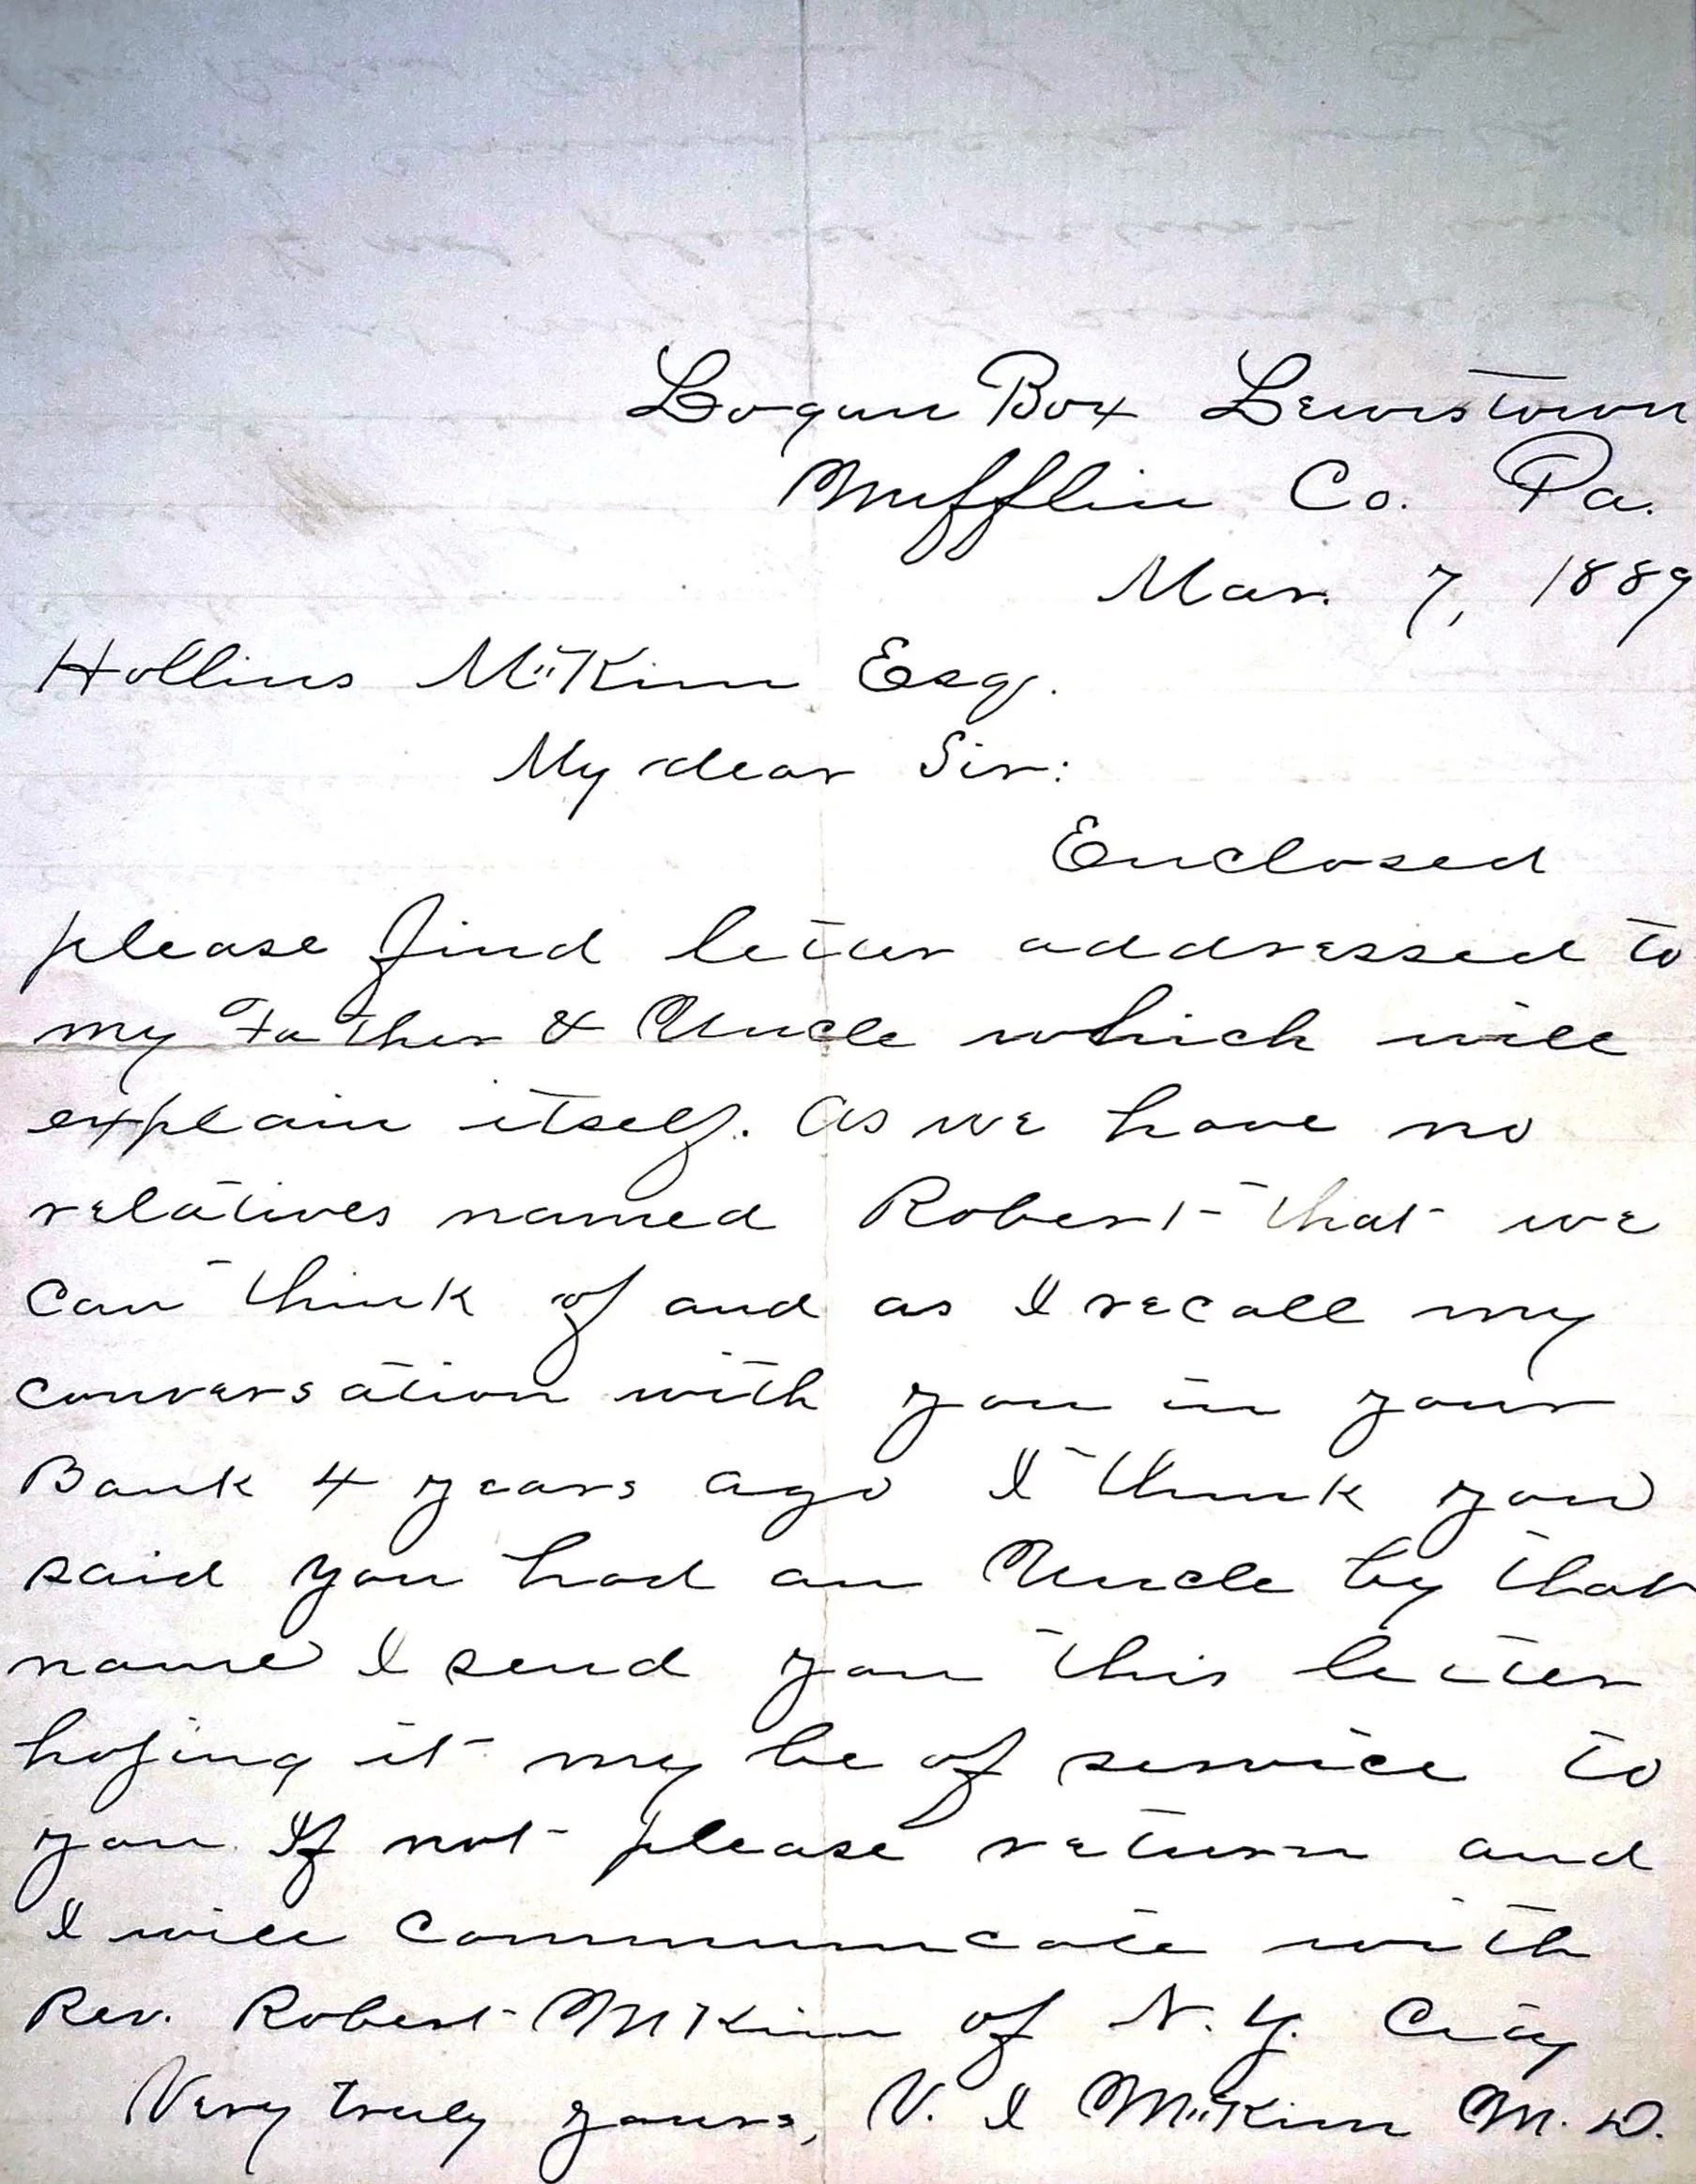 Logan Box Lewistown
Mifflin Co. Pa.
Mar. 7, 1889
Hollins M"Kim Esq.
My dear Sir:
Enclosed
please find letter addressed to
my Father & Uncle which will
explain itself. As we have no
relatives named Robert that we
can think of and as I recall my
conversation with you in your
Bank 4 years ago I think you
said you had an Uncle by that
name I send you this letter
hoping it my be of service to
you. If not please return and
I will communicate with
Rev. Robert McKim of N. Y. City
Very truly yours, V. I M"Kim M. D.